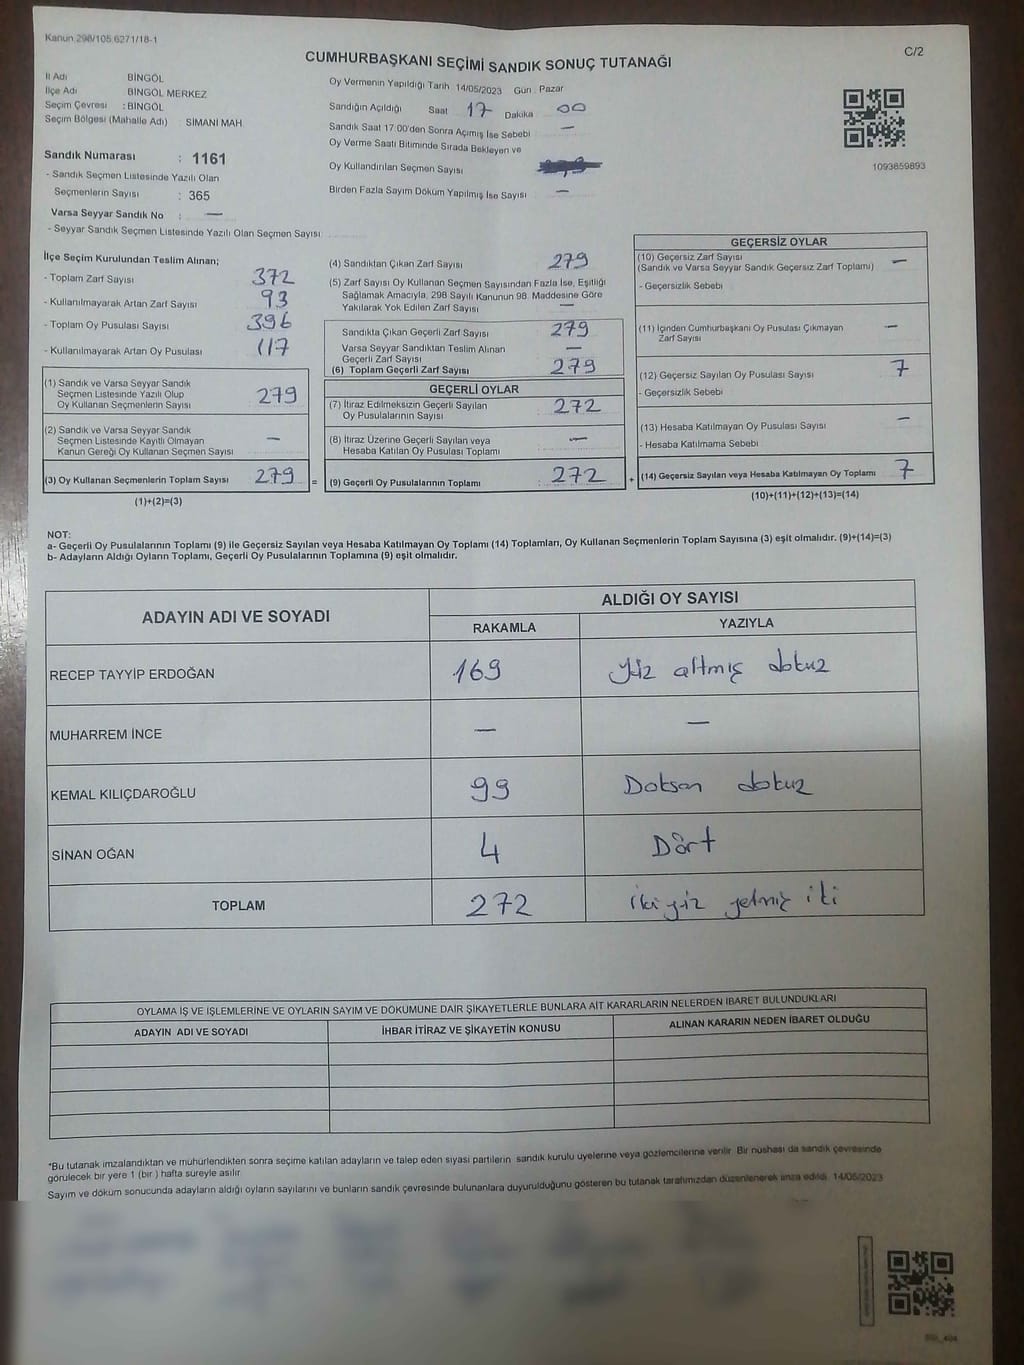 Kanun 298/105 6271/18-1
C/2
CUMHURBAŞKANI SEÇİMİ SANDIK SONUÇ TUTANAĞI
İl Adı BİNGÖL
İlçe Adı BİNGÖL MERKEZ
Seçim Çevresi : BİNGÖL
Seçim Bölgesi (Mahalle Adı) SİMANİ MAH.
Sandık Numarası : 1161
- Sandık Seçmen Listesinde Yazılı Olan
Seçmenlerin Sayısı : 365
Varsa Seyyar Sandık No : —
- Seyyar Sandık Seçmen Listesinde Yazılı Olan Seçmen Sayısı:
Oy Vermenin Yapıldığı Tarih 14/05/2023 Gün : Pazar
Sandığın Açıldığı Saat 17 Dakika 00
Sandık Saat 17:00'den Sonra Açılmış İse Sebebi —
Oy Verme Saati Bitiminde Sırada Bekleyen ve
Oy Kullandırılan Seçmen Sayısı
Birden Fazla Sayım Döküm Yapılmış İse Sayısı —
1093859893
İlçe Seçim Kurulundan Teslim Alınan;
- Toplam Zarf Sayısı 372
- Kullanılmayarak Artan Zarf Sayısı 93
- Toplam Oy Pusulası Sayısı 396
- Kullanılmayarak Artan Oy Pusulası 117
(1) Sandık ve Varsa Seyyar Sandık
Seçmen Listesinde Yazılı Olup
Oy Kullanan Seçmenlerin Sayısı 279
(2) Sandık ve Varsa Seyyar Sandık
Seçmen Listesinde Kayıtlı Olmayan
Kanun Gereği Oy Kullanan Seçmen Sayısı —
(3) Oy Kullanan Seçmenlerin Toplam Sayısı 279 =
(1)+(2)=(3)
(4) Sandıktan Çıkan Zarf Sayısı 279
(5) Zarf Sayısı Oy Kullanan Seçmen Sayısından Fazla İse, Eşitliği
Sağlamak Amacıyla, 298 Sayılı Kanunun 98. Maddesine Göre
Yakılarak Yok Edilen Zarf Sayısı —
Sandıkta Çıkan Geçerli Zarf Sayısı 279
Varsa Seyyar Sandıktan Teslim Alınan
Geçerli Zarf Sayısı —
(6) Toplam Geçerli Zarf Sayısı 279
GEÇERLİ OYLAR
(7) İtiraz Edilmeksizin Geçerli Sayılan
Oy Pusulalarının Sayısı 272
(8) İtiraz Üzerine Geçerli Sayılan veya
Hesaba Katılan Oy Pusulası Toplamı —
(9) Geçerli Oy Pusulalarının Toplamı 272 +
GEÇERSİZ OYLAR
(10) Geçersiz Zarf Sayısı —
(Sandık ve Varsa Seyyar Sandık Geçersiz Zarf Toplamı)
- Geçersizlik Sebebi
(11) İçinden Cumhurbaşkanı Oy Pusulası Çıkmayan
Zarf Sayısı —
(12) Geçersiz Sayılan Oy Pusulası Sayısı 7
- Geçersizlik Sebebi
(13) Hesaba Katılmayan Oy Pusulası Sayısı —
- Hesaba Katılmama Sebebi
(14) Geçersiz Sayılan veya Hesaba Katılmayan Oy Toplamı 7
(10)+(11)+(12)+(13)=(14)
NOT:
a- Geçerli Oy Pusulalarının Toplamı (9) ile Geçersiz Sayılan veya Hesaba Katılmayan Oy Toplamı (14) Toplamları, Oy Kullanan Seçmenlerin Toplam Sayısına (3) eşit olmalıdır. (9)+(14)=(3)
b- Adayların Aldığı Oyların Toplamı, Geçerli Oy Pusulalarının Toplamına (9) eşit olmalıdır.
ADAYIN ADI VE SOYADI ALDIĞI OY SAYISI
RAKAMLA YAZIYLA
RECEP TAYYİP ERDOĞAN 169 Yüz altmış dokuz
MUHARREM İNCE — —
KEMAL KILIÇDAROĞLU 99 Doksan dokuz
SİNAN OĞAN 4 Dört
TOPLAM 272 iki yüz yetmiş iki
OYLAMA İŞ VE İŞLEMLERİNE VE OYLARIN SAYIM VE DÖKÜMÜNE DAİR ŞİKAYETLERLE BUNLARA AİT KARARLARIN NELERDEN İBARET BULUNDUKLARI
ADAYIN ADI VE SOYADI İHBAR İTİRAZ VE ŞİKAYETİN KONUSU ALINAN KARARIN NEDEN İBARET OLDUĞU
*Bu tutanak imzalandıktan ve mühürlendikten sonra seçime katılan adayların ve talep eden siyasi partilerin sandık kurulu üyelerine veya gözlemcilerine verilir. Bir nüshası da sandık çevresinde
görülecek bir yere 1 (bir ) hafta süreyle asılır.
Sayım ve döküm sonucunda adayların aldığı oyların sayılarını ve bunların sandık çevresinde bulunanlara duyurulduğunu gösteren bu tutanak tarafımızdan düzenlenerek imza edildi. 14/05/2023